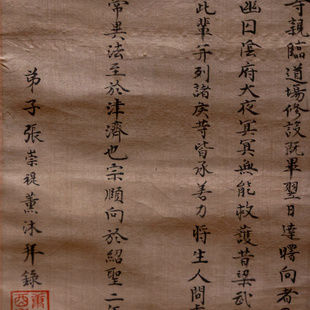 寺親臨道場修設既畢翌日達曙向者
幽曰陰府大夜冥冥無能救護昔梁武
此輩并列諸侯等皆承善力将生人間
常異法至於津濟也宗願向於紹聖二年
弟子張崇禔薰沐拜錄